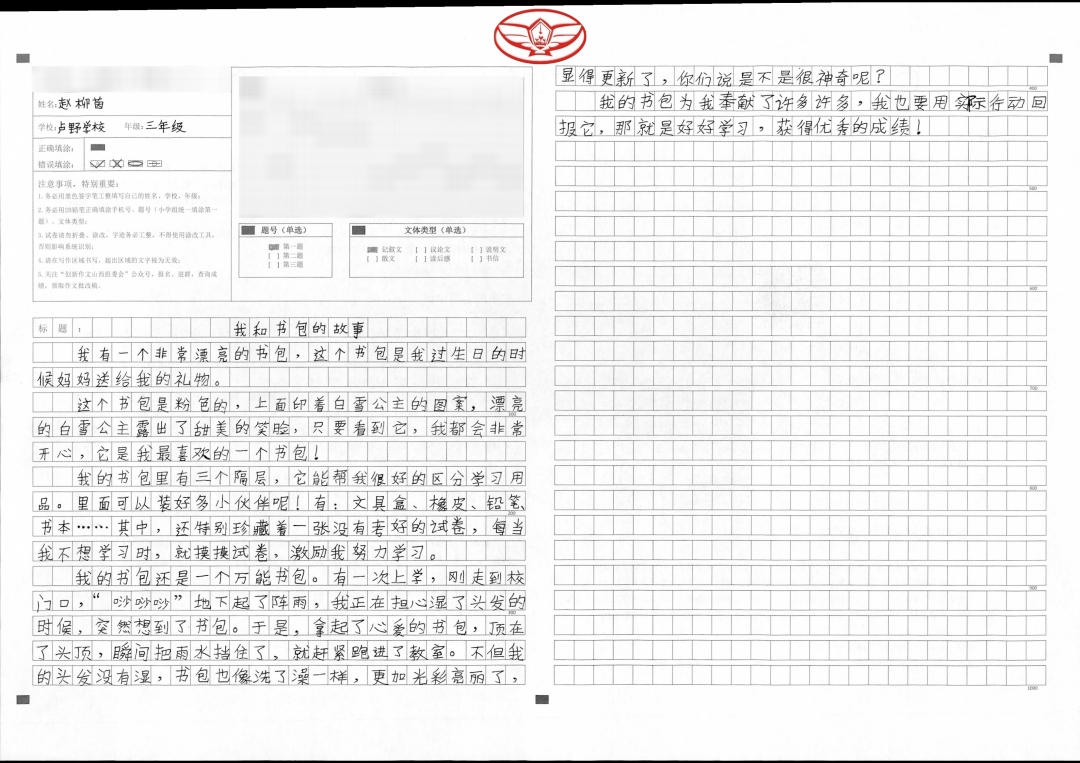 姓名:赵柳茵
学校:卢野学校 年级:三年级
正确填涂:
错误填涂:
注意事项,特别重要:
1.务必用黑色签字笔工整填写自己的姓名、学校、年级;
2.务必用2B铅笔正确填涂手机号、题号(小学组统一填涂第一
题)、文体类型;
3.试卷请勿折叠、涂改,字迹务必工整,不得使用涂改工具,
否则影响系统识别;
4.请在写作区域书写,超出区域的文字视为无效;
5.关注“创新作文山西组委会”公众号,报名、进群、查询成
绩、领取作文批改稿。
题号(单选)
第一题
[ ] 第二题
[ ] 第三题
文体类型(单选)
记叙文 [ ] 议论文 [ ] 说明文
[ ] 散文 [ ] 读后感 [ ] 书信
标题: 我和书包的故事
我有一个非常漂亮的书包,这个书包是我过生日的时
候妈妈送给我的礼物。
这个书包是粉包的,上面印着白雪公主的图案,漂亮
100
的白雪公主露出了甜美的笑脸,只要看到它,我都会非常
开心,它是我最喜欢的一个书包!
我的书包里有三个隔层,它能帮我很好的区分学习用
品。里面可以装好多小伙伴呢!有:文具盒、橡皮、铅笔、
200
书本……其中,还特别珍藏着一张没有考好的试卷,每当
我不想学习时,就摸摸试卷,激励我努力学习。
我的书包还是一个万能书包。有一次上学,刚走到校
门口,“唦唦唦”地下起了阵雨,我正在担心湿了头发的
300
时候,突然想到了书包。于是,拿起了心爱的书包,顶在
了头顶,瞬间把雨水挡住了,就赶紧跑进了教室。不但我
的头发没有湿,书包也像洗了澡一样,更加光彩亮丽了,
显得更新了,你们说是不是很神奇呢?
400
我的书包为我奉献了许多许多,我也要用实际行动回
报它,那就是好好学习,获得优秀的成绩!
500
600
700
800
900
1000